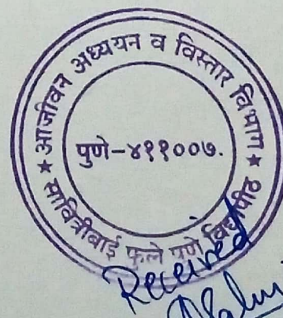 ★ आजीवन अध्ययन व विस्तार विभाग ★
पुणे-४११००७.
सावित्रीबाई फुले पुणे विद्यापीठ
Received